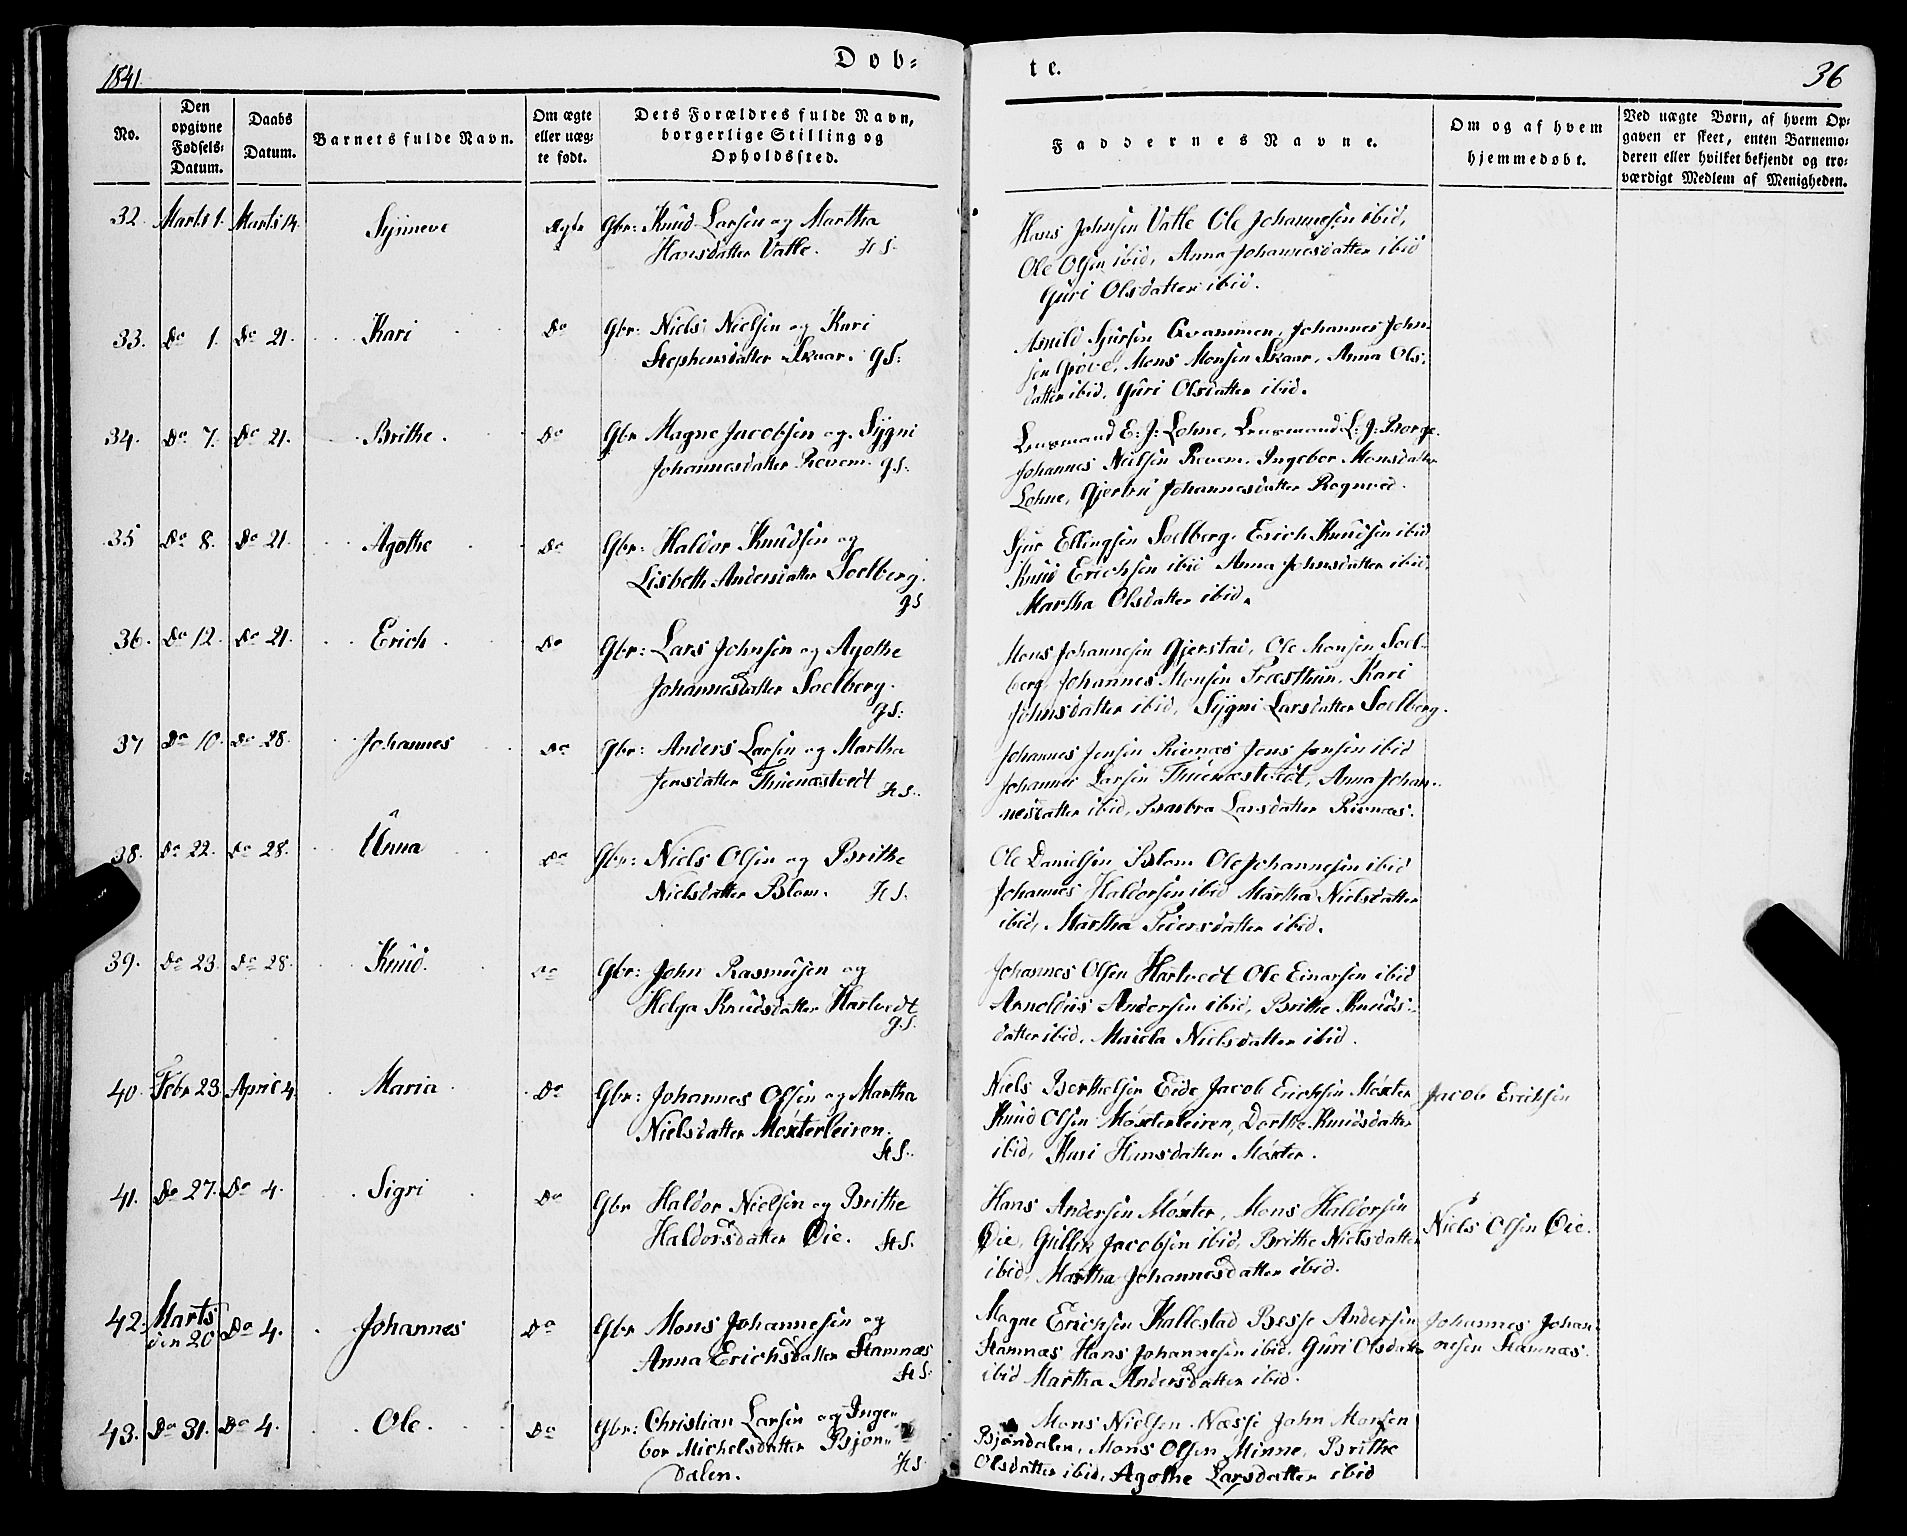 1841.
Døb-
te.
36
No.
Den opgivne Fødsels-Datum.
Daabs Datum.
Barnets fulde Navn.
Om ægte eller uæg-te født.
Dets Forældres fulde Navn, borgerlige Stilling og Opholdssted.
Faddernes Navne.
Om og af hvem hjemmedøbt.
Ved uægte Børn, af hvem Op-
gaven er skeet, enten Barnemo-
deren eller hvilket bekjendt og tro-
værdigt Medlem af Menigheden.
32. Marts 1. Marts 14. Synneve Ægte Gbr: Knud Larsen og Martha
Hansdatter Vatle. HS.
Hans Johnsen Vatle Ole Johannesen ibid,
Ole Olsen ibid, Anna Johannesdatter ibid
Guri Olsdatter ibid.
33. Do 1. Do 21. Kari Do Gbr: Niels Nielsen og Kari
Stephensdatter Skaar. gS:
Sjursen Qvammen, Johannes John-
sen Gjøve, Mons Monsen Skaar, Anna Ols-
datter ibid, Guri Olsdatter ibid.
34. Do 7. Do 21. Brithe Do Gbr Magne Jacobsen og Sygni
Johannesdatter Revem. gS.
Lensmand E: J: Lohne, Lensmand L: J: Borge
Johannes Nielsen Revem. Ingebor Monsdatter
Lohne, Gjertru Johannesdatter Rognved.
35 Do 8. Do 21. Agothe Do Gbr: Haldor Knudsen og
Lisbeth Andersdatter Soelberg.
gS
Sjur Ellingsen Soelberg, Erich Knudsen ibid
Knud Erichsen ibid Anna Johnsdatter ibid,
Martha Olsdatter ibid.
36. Do 12. Do 21. Erich Do Gbr: Lars Johnsen og Agothe
Johannesdatter Soelberg.
gS:
Mons Johannesen Gjerstad, Ole Monsen Soel-
berg, Johannes Monsen Præsthun, Kari
Johnsdatter ibid, Sygni Larsdatter Soelberg.
37 Do 10. Do 28. Johannes Do Gbr: Anders Larsen og Martha
Jensdatter Thuenæstvedt HS.
Johannes Jensen Rivnæs Jens Jensen ibid
Johannes Larsen Thuenæstvedt, Anna Johan-
nesdatter ibid, Barbra Larsdatter Rivnæs.
38. Do 22. Do 28. Anna Do Gbr: Niels Olsen og Brithe
Nielsdatter Blom. HS.
Ole Danielsen Blom Ole Johannesen ibid
Johannes Haldorsen ibid Martha Nielsdatter
ibid, Martha Pedersdatter ibid.
39. Do 23. Do 28. Knud. Do Gbr: John Rasmusen og
Helga Knudsdatter Hartvedt
gS.
Johannes Olsen Hartvedt Ole Einarsen ibid
Arnoldus Andersen ibid, Brithe Knuds-
datter ibid, Nielsdatter ibid.
40. Febr 23. April 4. Maria Do Gbr: Johannes Olsen og Martha
Nielsdatter Møxterleiren.
HS.
Niels Berthelsen Eide Jacob Erichsen Møxter
Knud Olsen Møxterleiren, Dorthe Knudsdatter
ibid, Kari Hansdatter Møxter.
Jacob Erichsen
41. Do 27. Do 4. Sigri Do Gbr Haldor Nielsen og Brithe
Haldorsdatter Øie. HS.
Hans Andersen Møxter, Mons Haldorsen
Øie, Gullik Jacobsen ibid, Brithe Nielsdatter
ibid, Martha Johannesdatter ibid.
Niels Olsen Øie.
42. Marts
den 20 Do 4. Johannes Do Gbr Mons Johannesen og
Anna Erichsdatter Stamnæs
HS.
Magne Erichsen Hallestad Besse Andersen
Stamnæs Hans Johannesen ibid, Guri Olsdatter
ibid Martha Andersdatter ibid.
Johannes Johan-
nesen Stamnæs.
43. Do 31. Do 4. Ole. Do Gbr: Christian Larsen og Inge-
bor Michelsdatter Bjørn-
dalen. HS
Mons Nielsen Næsse John Monsen
Bjørndalen, Mons Olsen Minne, Brithe
Olsdatter ibid, Agothe Larsdatter ibid